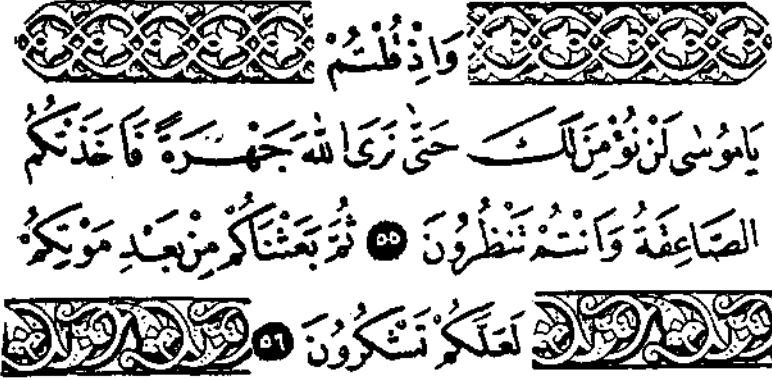 وَاِذْ قُلْتُمْ
يَامُوسٰى لَنْ نُؤْمِنَ لَكَ حَتّٰى نَرَى اللّٰهَ جَهْرَةً فَاَخَذَتْكُمُ
الصَّاعِقَةُ وَاَنْتُمْ تَنْظُرُونَ ٥٥ ثُمَّ بَعَثْنَاكُمْ مِنْ بَعْدِ مَوْتِكُمْ
لَعَلَّكُمْ تَشْكُرُونَ ٥٦